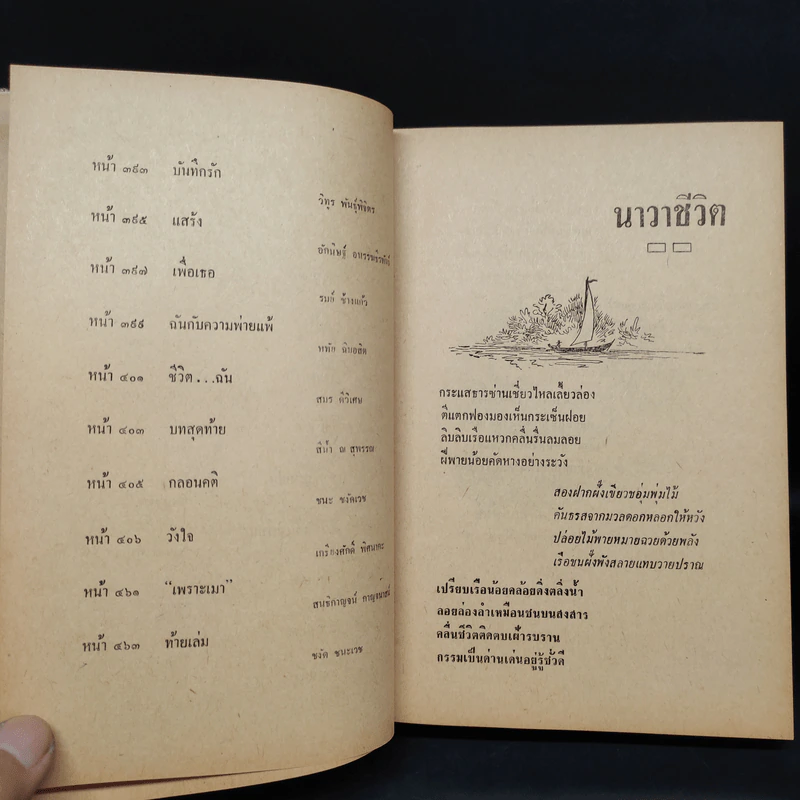 หน้า ๓๙๓ บันทึกรัก
วิทูร พันธุ์พิจิตร
หน้า ๓๙๕ แสร้ง
หน้า ๓๙๗ เพื่อเธอ
รมย์ ช้างแก้ว
หน้า ๓๙๙ ฉันกับความพ่ายแพ้
หน้า ๔๐๑ ชีวิต...ฉัน
สมร ดีวิเศษ
หน้า ๔๐๓ บทสุดท้าย
สีน้ำ ณ สุพรรณ
หน้า ๔๐๕ กลอนคติ
ชนะ ชงัดเวช
หน้า ๔๐๖ วังใจ
เกรียงศักดิ์ พิศนาคะ
หน้า ๔๖๑ “เพราะเมา”
สนธิกาญจน์ กาญจนาสน์
หน้า ๔๖๓ ท้ายเล่ม
ชงัด ชนะเวช
นาวาชีวิต
กระแสธารซ่านเชี่ยวไหลเลี้ยวล่อง
ตีแตกฟองมองเห็นกระเซ็นฝอย
ลิบลิบเรือแหวกคลื่นรื่นลมลอย
ฝีพายน้อยคัดหางอย่างระวัง
สองฝากฝั่งเขียวชอุ่มพุ่มไม้
คันธรสจากมวลดอกหลอกให้หวัง
ปล่อยไม้พายหมายฉวยด้วยพลัง
เรือชนฝั่งพังสลายแทบวายปราณ
เปรียบเรือน้อยคล้อยดิ่งตลิ่งน้ำ
ลอยล่องลำเหมือนชนบนสงสาร
คลื่นชีวิตติดตบเฝ้ารบราน
กรรมเป็นด่านเด่นอยู่รู้ชั่วดี